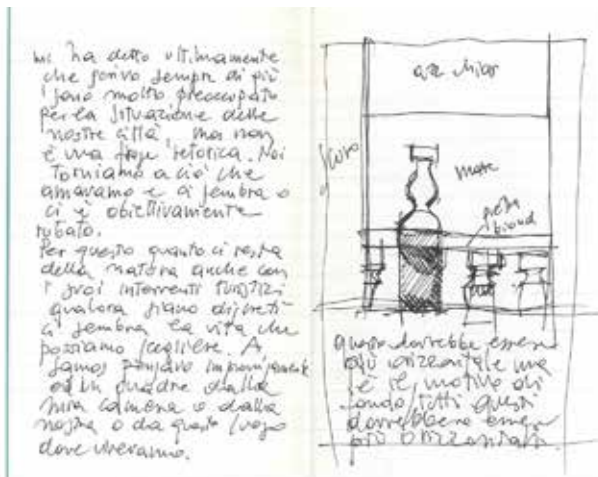 mi ha detto ultimamente
che scrivo sempre di più
sono molto preoccupato
per la situazione delle
nostre città, ma non
è una frase retorica. Noi
torniamo a ciò che
amavamo e ci sembra o
ci è obiettivamente
rubato.
Per questo quanto ci resta
della natura anche con
i suoi interventi turistici
qualora siano discreti
ci sembra la vita che
possiamo scegliere. A
Samos pensavo improvvisamente
ad un quadro dalla
mia camera o dalla
nostra o da questo luogo
dove vivevamo.
scuro
mare
pietra
bionda
questo dovrebbe essere
più orizzontale ma
è il motivo di
fondo/tutti questi
dovrebbero essere
più orizzontali.